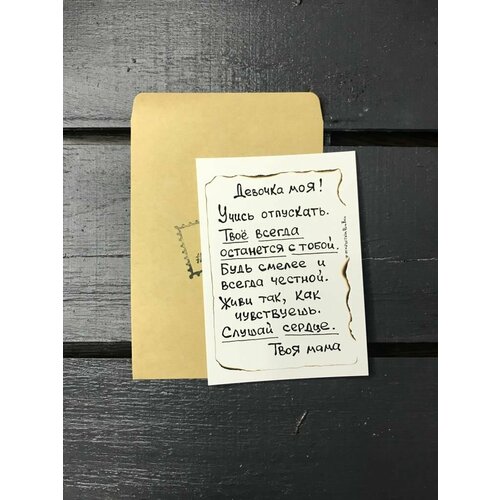 Девочка моя!
Учись отпускать.
Твоё всегда
останется с тобой.
Будь смелее и
всегда честной.
Живи так, как
чувствуешь.
Слушай сердце.
Твоя мама